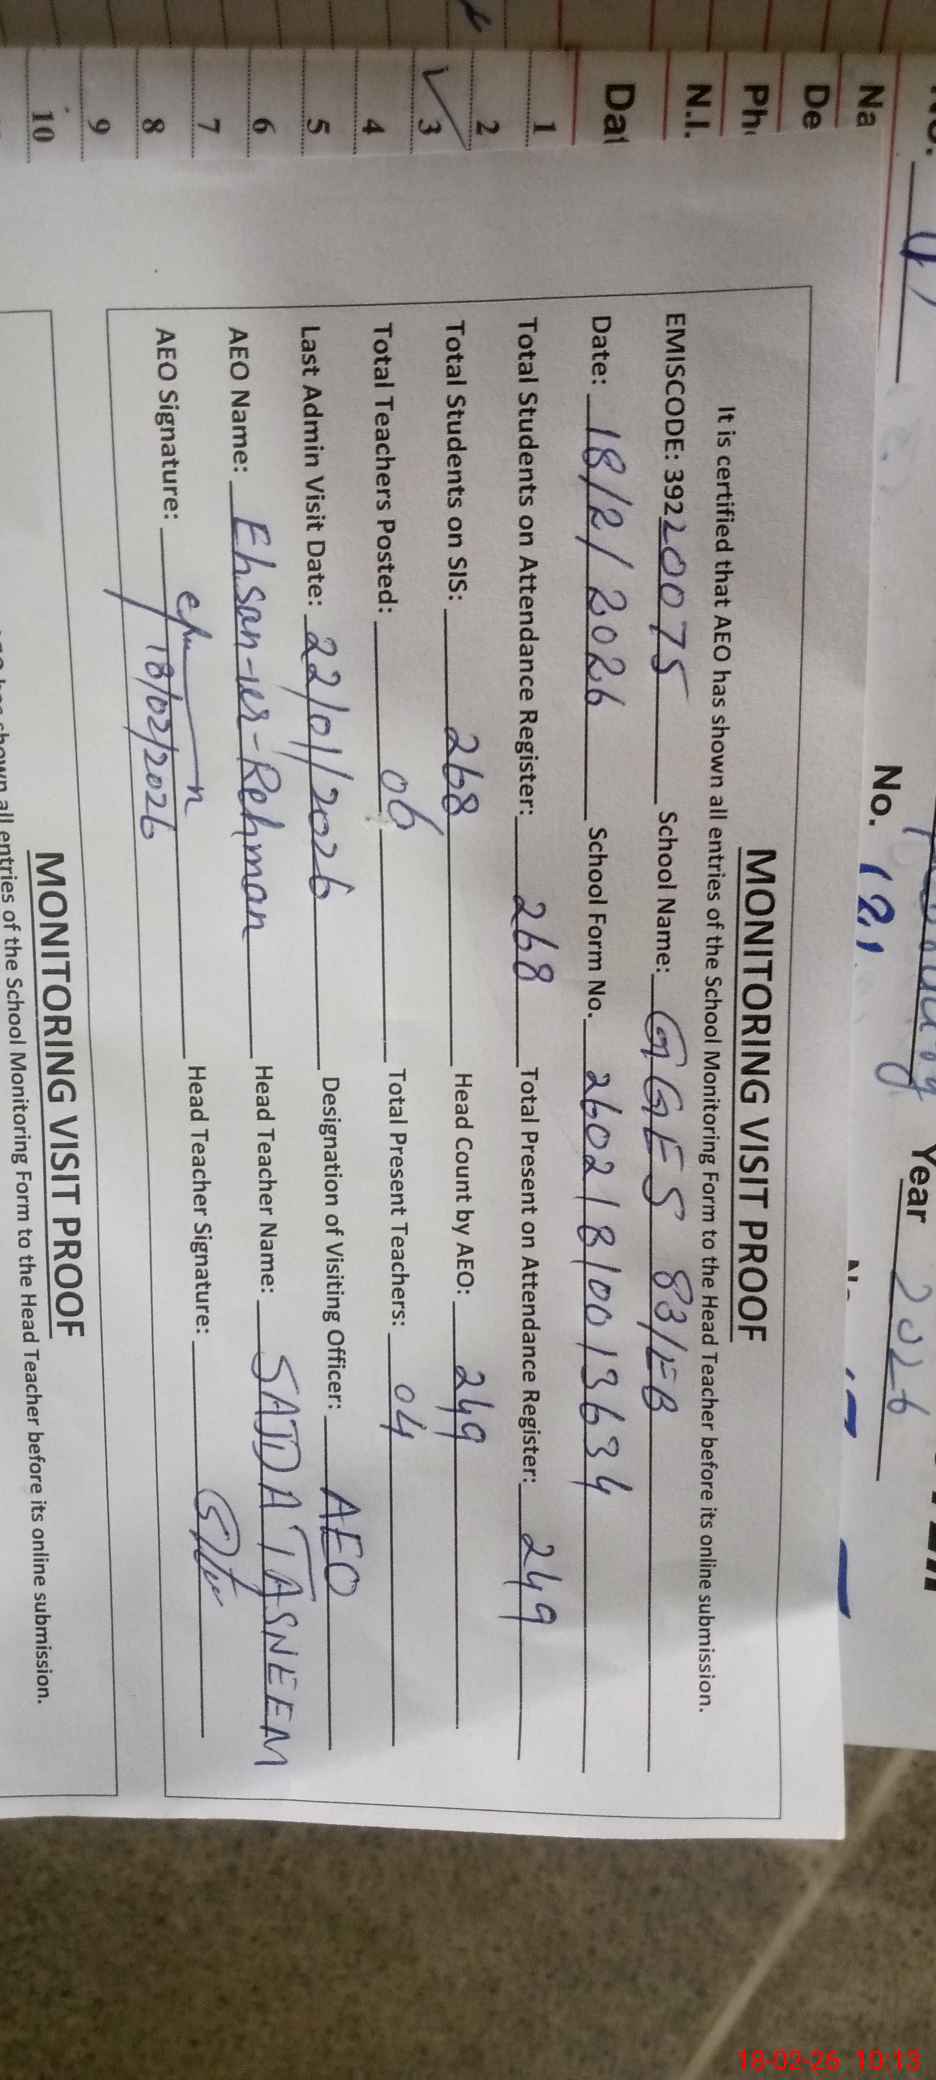 Year 2026
No. 121
Na
De
Ph
N.I.
Dat
1
2
3
4
5
6
7
8
9
10
MONITORING VISIT PROOF
It is certified that AEO has shown all entries of the School Monitoring Form to the Head Teacher before its online submission.
EMISCODE: 39220075 School Name: GGES 83/EB
Date: 18/2/2026 School Form No. 26021810013634
Total Students on Attendance Register: 268 Total Present on Attendance Register: 249
Total Students on SIS: 268 Head Count by AEO: 249
Total Teachers Posted: 06 Total Present Teachers: 04
Last Admin Visit Date: 22/01/2026 Designation of Visiting Officer: AEO
AEO Name: Ehsan-ur-Rehman Head Teacher Name: SAJDA TASNEEM
AEO Signature: 18/02/2026 Head Teacher Signature:
MONITORING VISIT PROOF
shown all entries of the School Monitoring Form to the Head Teacher before its online submission.
18-02-26 10:13